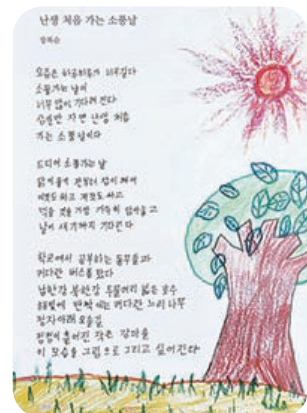 난생 처음 가는 소풍날
요즘은 하루하루가 너무길다
소풍가는 날이
너무 많이 기다려 진다
십오밤 자면 난생 처음
가는 소풍날이다
드디어 소풍가는 날
닭 울기 전부터 잠이 깨서
이것도 하고 저것도 싸고
먹을 것을 가방 가득히 담아놓고
날이 새기까지 기다린다
학교에서 공부하는 동무들과
커다란 버스를 탔다
남한강 북한강 두물머리 넓은 호수
햇빛에 반짝이는 커다란 느티나무
정자아래 오솔길
띄엄이 흩어진 작은 강마을
이 모습을 그림으로 그리고 싶어진다